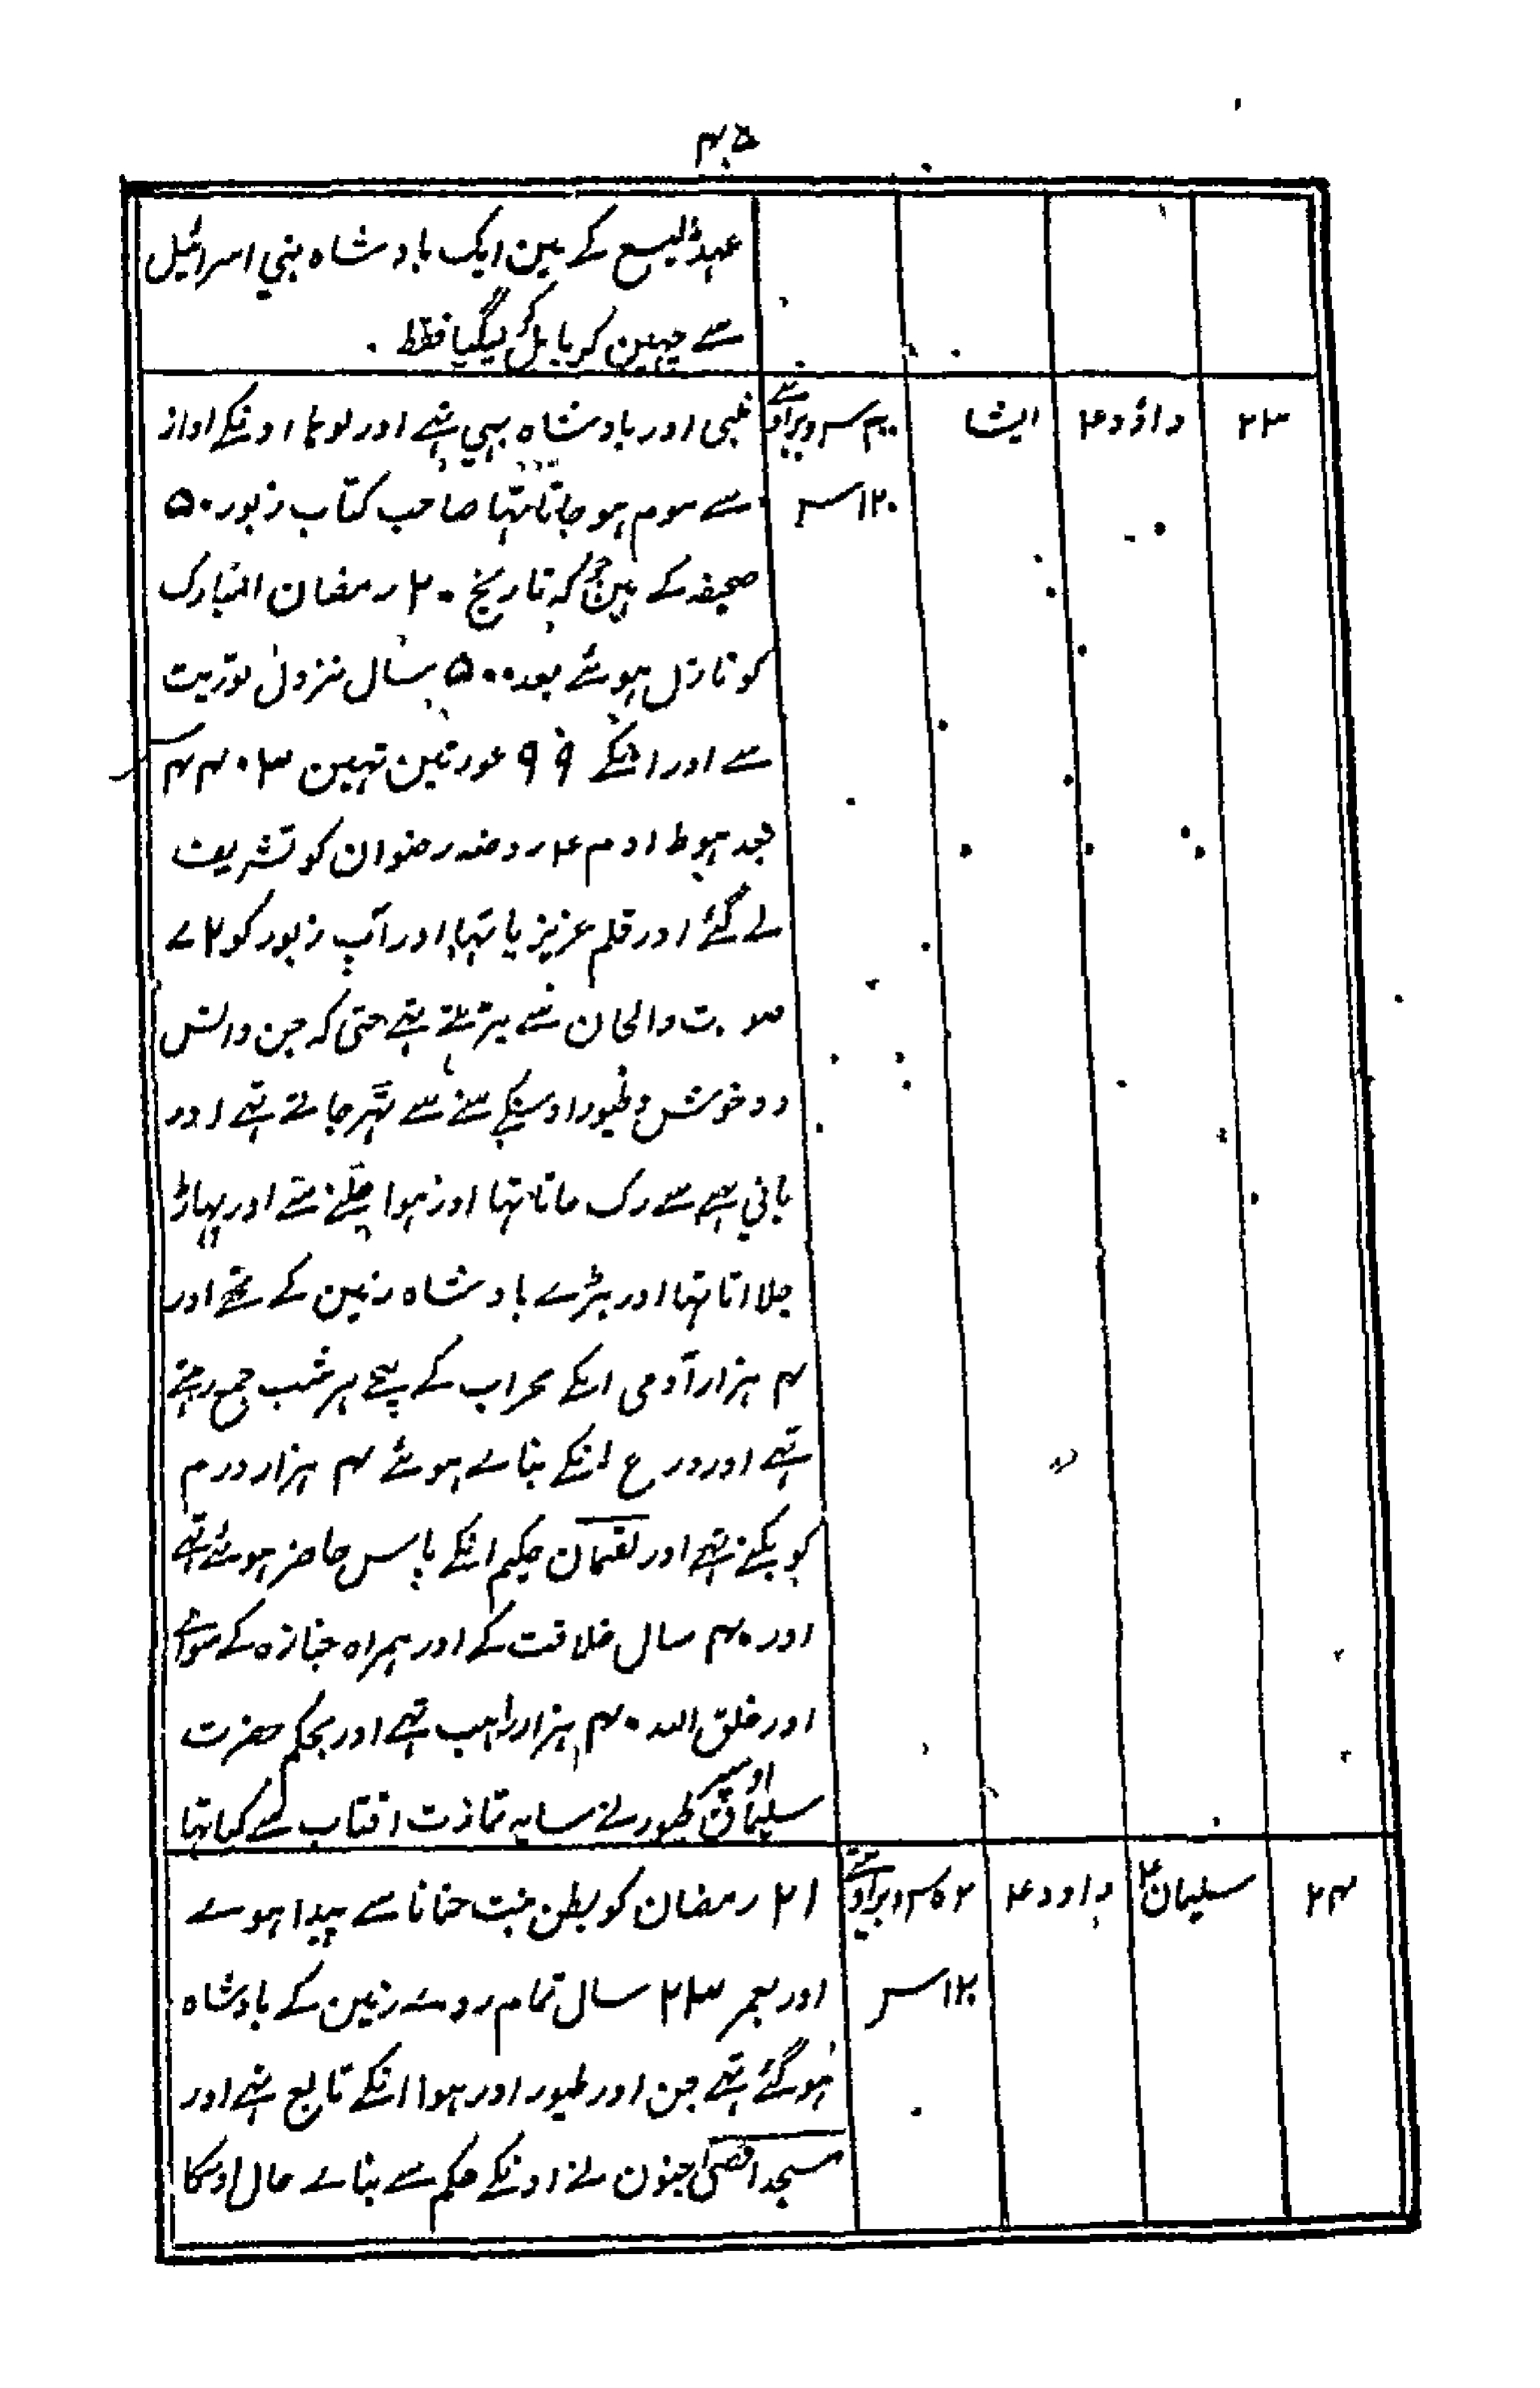 ۴۵
عہد الیسع کے مین ایک بادشاہ بني اسرائیل
سے چہین کر بابل کو لیگیا فقط
۲۳ داؤد۴ ایشا
نبی اور بادشاہ بہي تہے اور لوہا اونکے اواز
۱۲۰س سے موم ہو جاتا تہا صاحب کتاب زبور ۵۰
صحیفہ کے ہین جو کہ تاریخ ۲۰ رمضان المبارک
کو نازل ہوئے بعد ۵۰۰ سال نزول توریت
سے اور انکے ۹۹ عورتین تہین ۴۴۰۳
بعد ہبوط ادم ۴ روضہ رضوان کو تشریف
لے گئے اور قلم عزیز یا تہا اور آپ زبور کو ۷۲
صوت والحان سے پڑہتے تہے حتی کہ جن وانس
و وحوش و طیور اوسکے سننے سے ٹہر جاتے تہے اور
پاني بہے سے رک جاتا تہا اور ہوا چلنے سے اور پہاڑ
چلا اتا تہا اور بڑے بادشاہ زمین کے تہے اور
۴ ہزار آدمی انکے محراب کے پیچہے ہر شب جمع رہتے
تہے اور درع انکے بنائے ہوئے ۴ ہزار درم
کو بکتے تہے اور لقمان حکیم انکے پاس حاضر ہوئے تہے
اور ۴۰ سال خلافت کے اور ہمراہ جنازہ کے سوائے
اور خلق اللہ ۴۰ ہزار راہب تہے اور بحکم حضرت
سلیمان اوسپر طیور نے سایہ تمازت افتاب سے کیا تہا
۲۴ سلیمان۴ داود۴
۲۱ رمضان کو بطن بنت حنانا سے پیدا ہوے
۱۲۰س اور بعمر ۲۳ سال تمام روے زمین کے بادشاہ
ہو گئے تہے جن اور طیور اور ہوا انکے تابع تہے اور
مسجد اقصی جنون نے اونکے حکم سے بنائے حال اوسکا